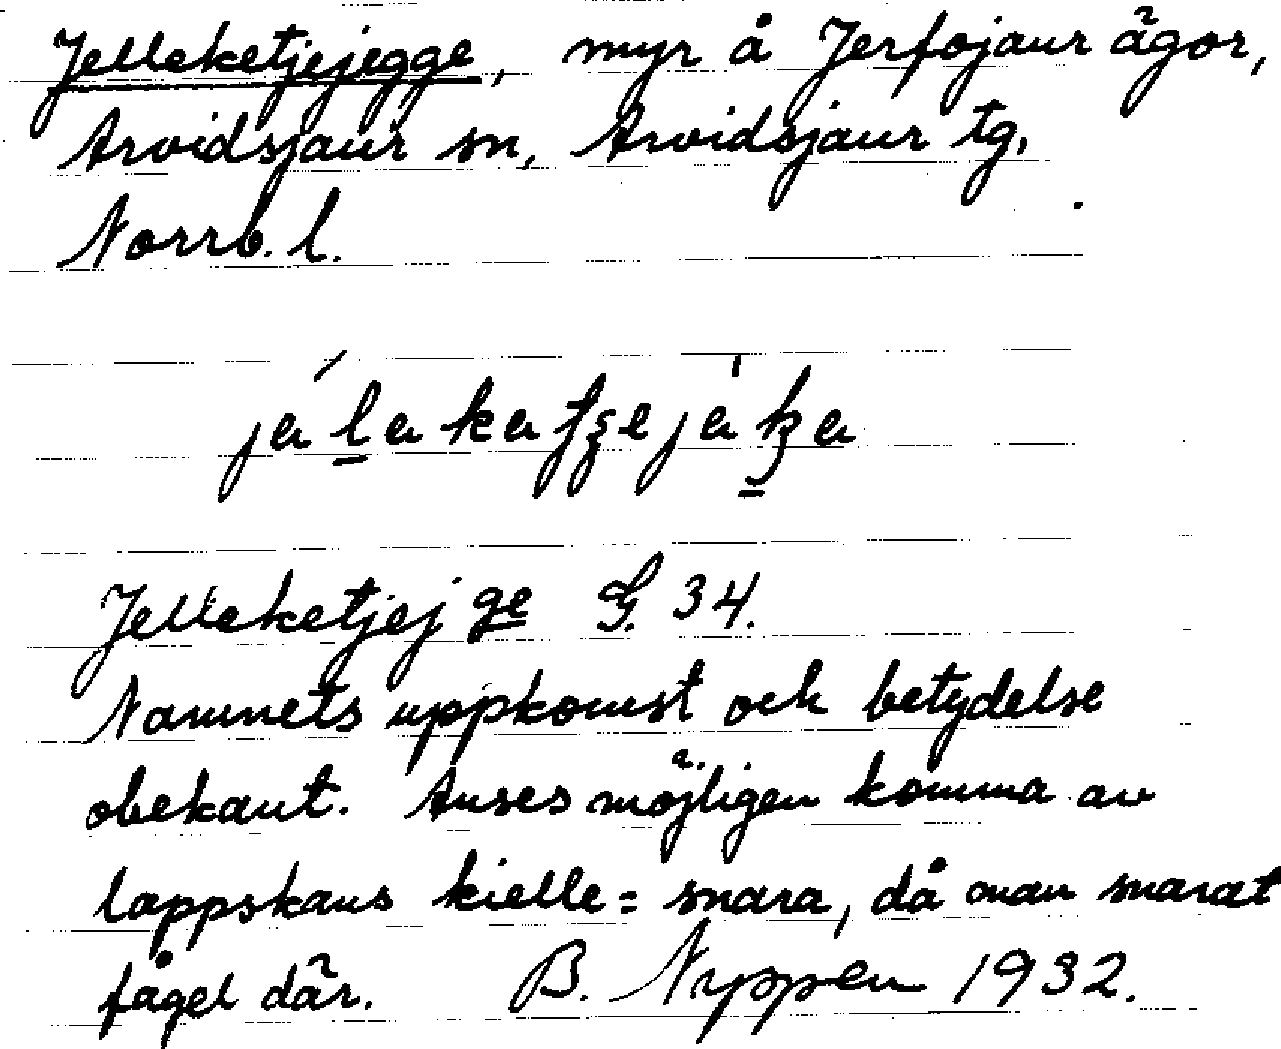 Jelleketjejegge, myr å Jerfojaur ägor,
Arvidsjaur sn, Arvidsjaur tg,
Norrb. l.
Jelleketjejge G. 34.
Namnets uppkomst och betydelse
obekant. Anses möjligen komma av
lappskans kielle = snara, då man snarat
fågel där. B. Nyppen 1932.